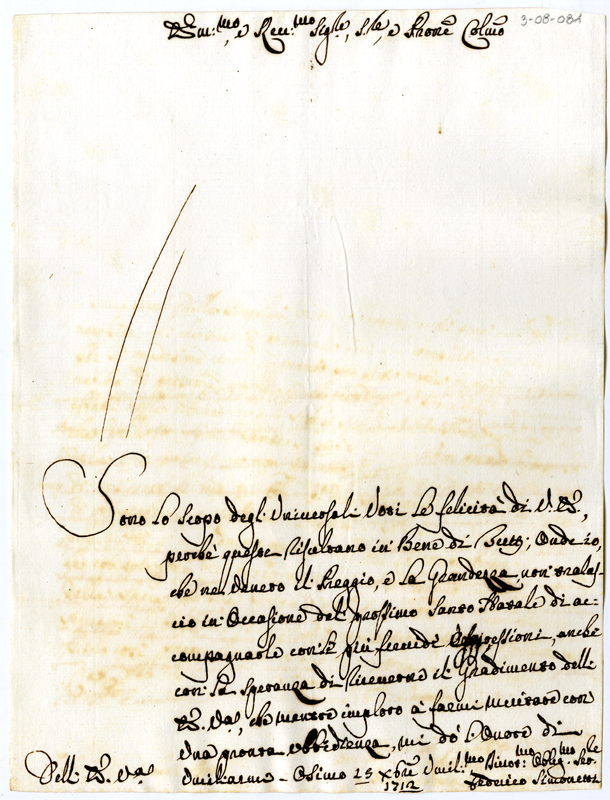 3-08-084
Em:mo, e Reu:mo Sig:re, S:re, e Prone Colmo
Sono lo Scopo degl' Universali Voti le felicità di V. Em.,
perche queste risultano in Bene di Tutti; Onde io,
che ne venero il Preggio, e la Grandezza, non tralas-
cio in Occasione del prossimo Santo Natale di ac-
compagnarle con le più fervide espressioni, anche
con la speranza di riceverne il Gradimento dell'
Em. Va, che mentre imploro à farmi meritare con
una pronta obbedienza, mi dò l'Onore di
umiliarmi - Osimo 25 Xbre 1712
Dell' Em. Va
Umil:mo Divot:mo Oblig:mo Se:re
Federico Simonetti